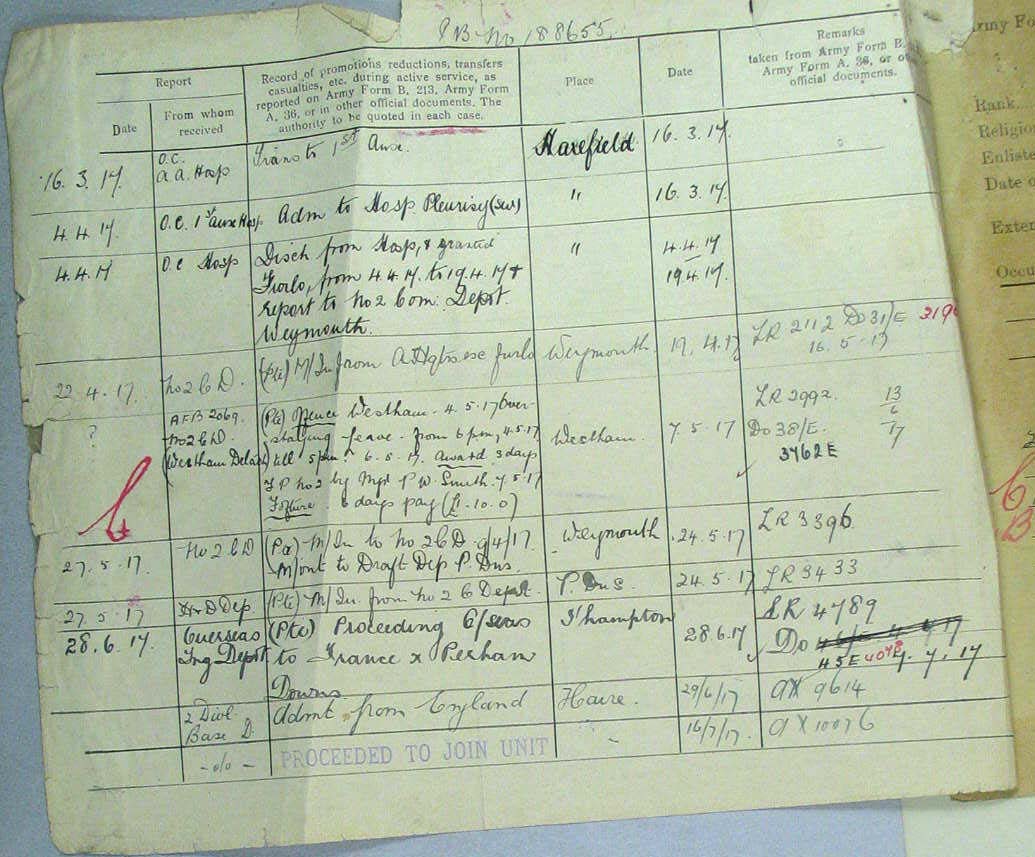 P B No 188655.
Report
Date
From whom received
Record of promotions reductions, transfers
casualties, etc. during active service, as
reported on Army Form B. 213, Army Form
A. 36, or in other official documents. The
authority to be quoted in each case.
Place
Date
Remarks
taken from Army Form B.
Army Form A. 36, or
official documents.
16. 3. 17.
O.C.
A.A. Hosp
Trans to 1st Aux.
Harefield
16. 3. 17.
4.4.17.
O.C. 1st Aux Hosp.
Adm to Hosp Pleurisy (sev)
"
16. 3. 17.
4.4.17
O.C Hosp
Disch from Hosp, & granted
Furlo, from 4.4.17. to 19.4.17 &
report to No 2 Com. Depot.
Weymouth.
"
4.4.17
19.4.17.
22.4.17.
No 2 C D.
(Pte) M/In from A Hqtrs exc furlo
Weymouth
19.4.17
LR 2112 Do 31/E
16.5.17
?
AFB 2069.
No 2 C D.
(Westham Detach)
(Pte) Offence Westham. 4.5.17 Over-
staying leave from 6 pm, 4.5.17
till 5 pm 6.5.17. Award 3 days
F P No 2 by Mjr P W. Smith. 7.5.17
6 days pay (£1.10.0)
Westham.
7.5.17
LR 2992.
Do 38/E.
3762E
13
6
17
27.5.17.
No 2 C D
M/In to No 2 C D 9/4/17.
M/out to Draft Dep P. Dns.
Weymouth
24.5.17
LR 3396.
27.5.17
Dep.
(Pte) M/In. from No 2 C Depot.
P. Dns.
24.5.17
LR 3433
28.6.17
Overseas
Tng Depot
(Pte) Proceeding O/seas
to France x Perham
Downs
S'hampton
28.6.17
LR 4789
Do
45E 4078 4. 7. 17
2 Divl
Base D.
Admt from England
Havre.
29/6/17
AX 9614
-o/o-
PROCEEDED TO JOIN UNIT
16/7/17.
AX 10076
Army Fo
Rank.
Religio
Enliste
Date o
Exter
Occu